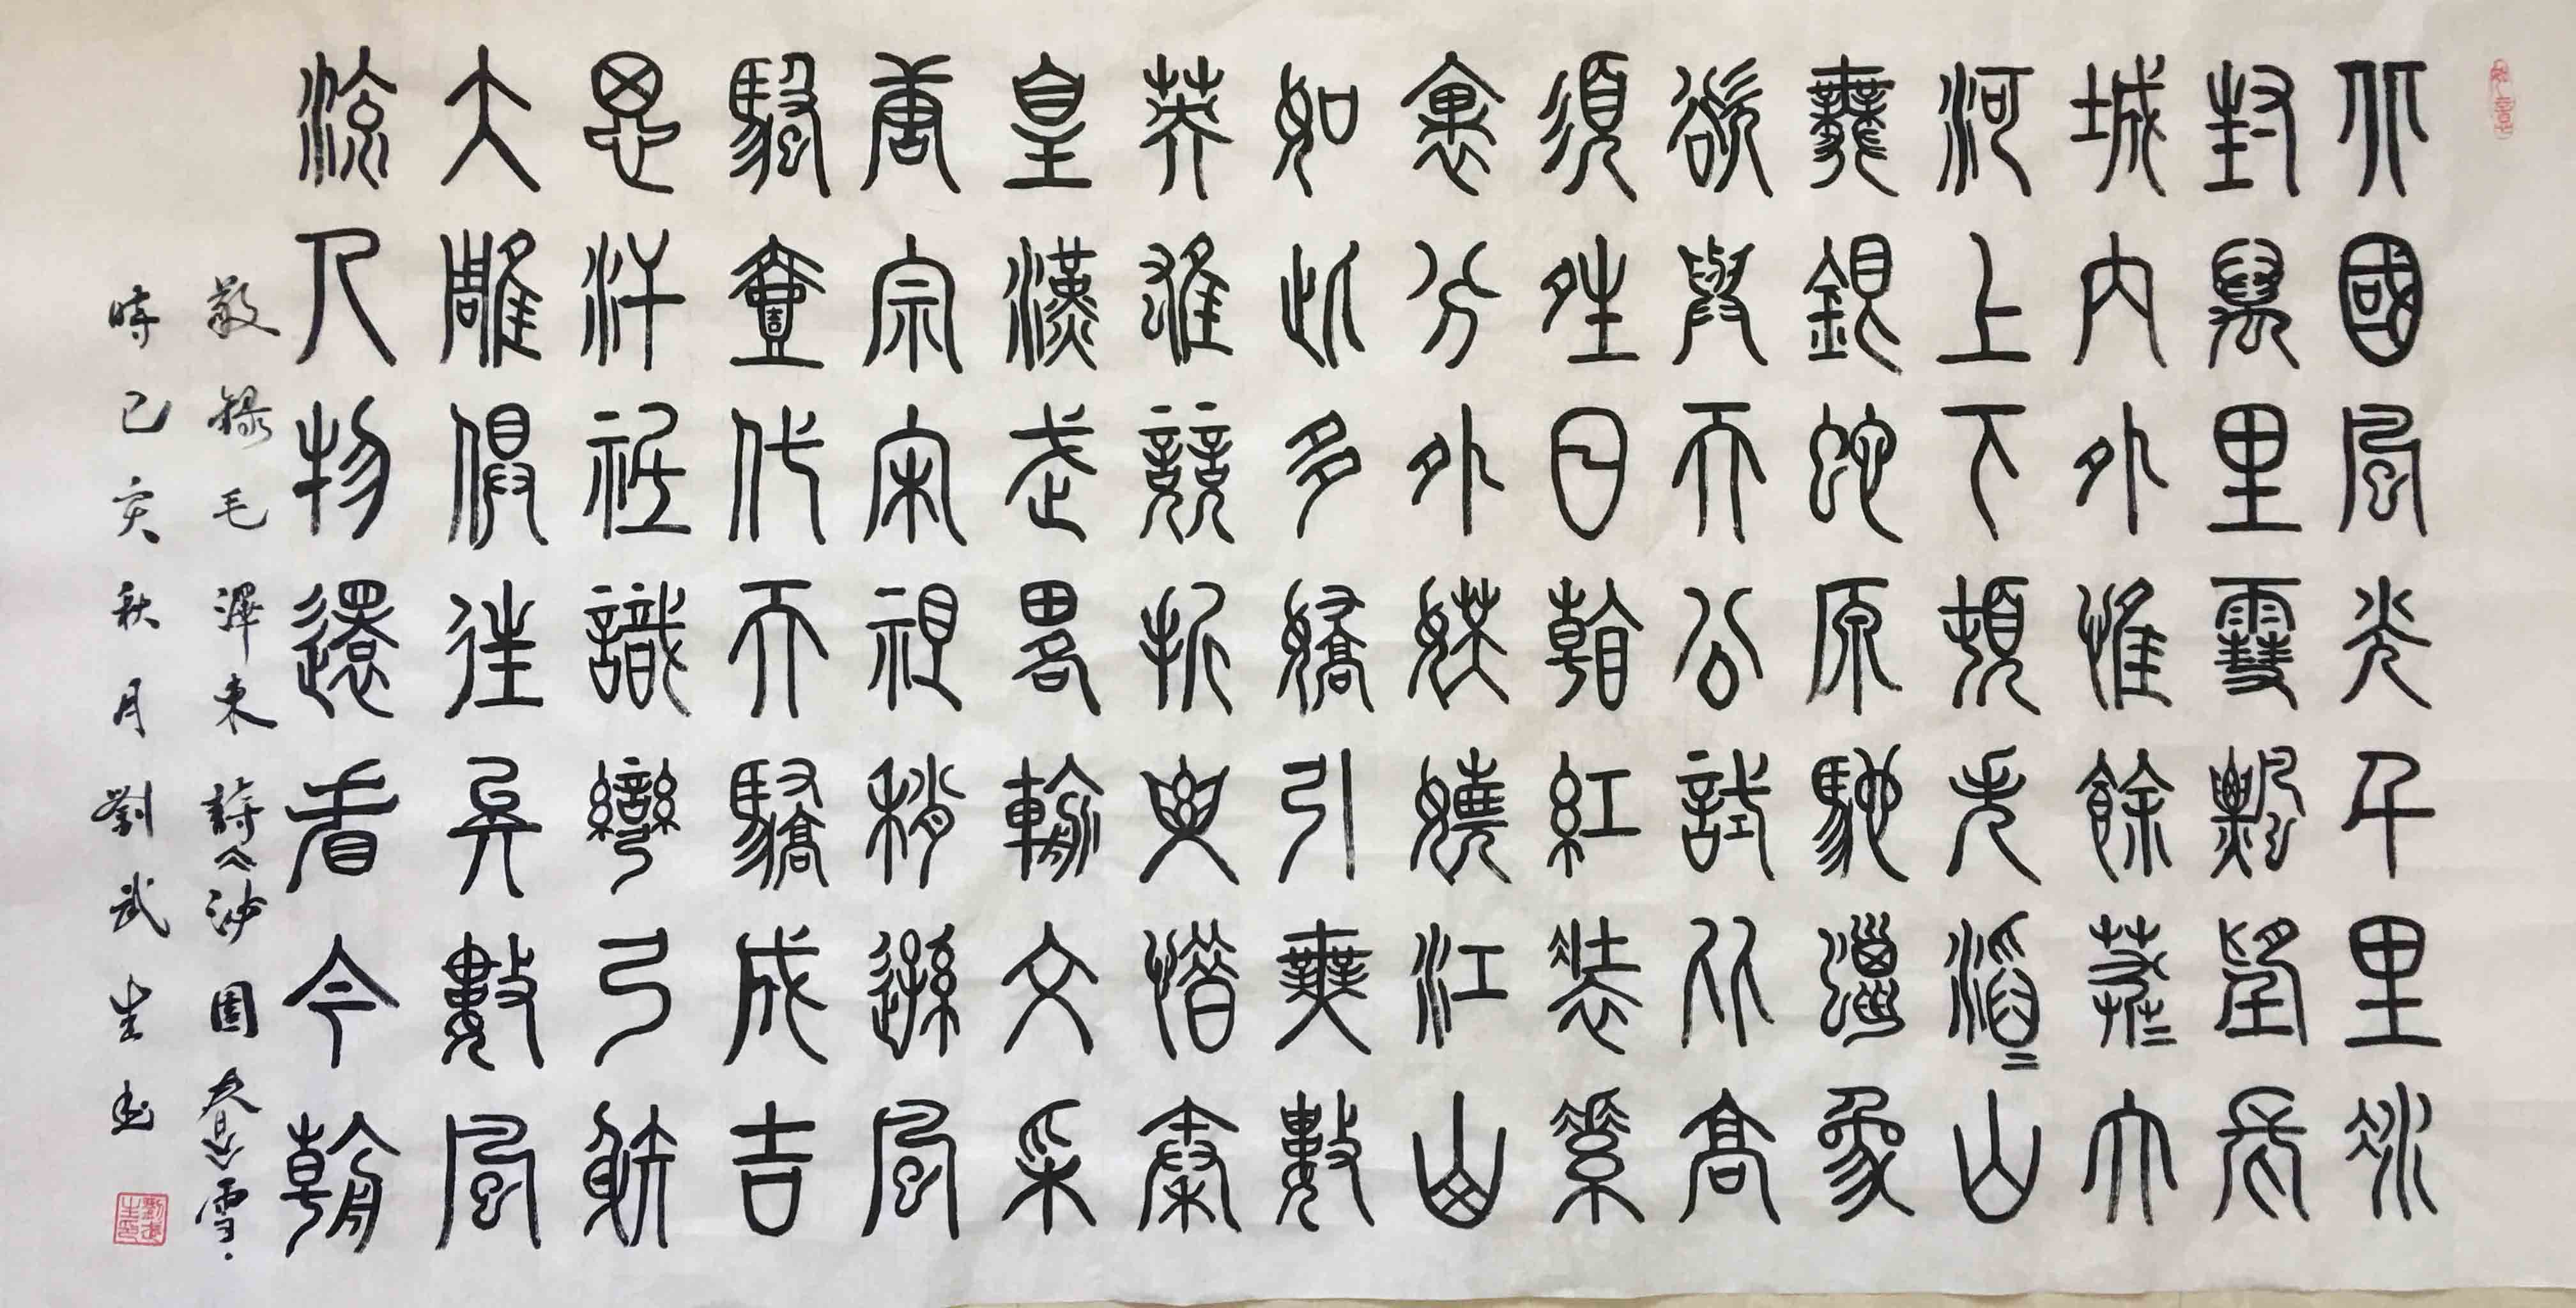 北國風光千里冰
封萬里雪飄望長
城內外惟餘莽〻大
河上下頓失滔〻山
舞銀蛇原馳蠟象
欲與天公試比高
須晴日看紅裝素
裹分外妖嬈江山
如此多嬌引無數
英雄競折腰惜秦
皇漢武略輸文采
唐宗宋祖稍遜風
騷壹代天驕成吉
思汗祇識彎弓射
大雕俱往矣數風
流人物還看今朝
敬錄毛澤東詩《沁園春》雪.
時己亥秋月劉武生书
劉武生印